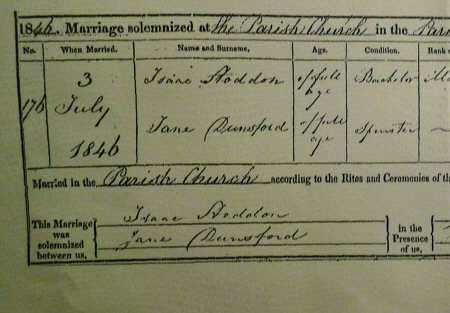 1846. Marriage solemnized at The Parish Church in the Pari
No. When Married. Name and Surname. Age. Condition. Rank o
3 Isaac Stoddon of full age Bachelor
176 July
Jane Dunsford of full age Spinster
1846
Married in the Parish Church according to the Rites and Ceremonies of th
This Marriage was solemnized between us, Isaac Stoddon Jane Dunsford in the Presence of us,